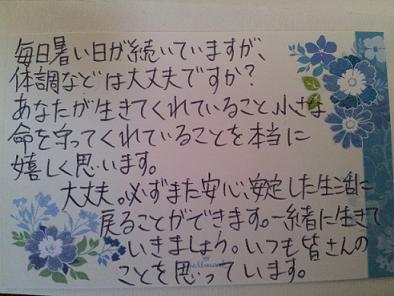 毎日暑い日が続いていますが、
体調などは大丈夫ですか?
あなたが生きてくれていること、小さな
命を守ってくれていることを本当に
嬉しく思います。
大丈夫。必ずまた安心、安定した生活に
戻ることができます。一緒に生きて
いきましょう。いつも皆さんの
ことを思っています。